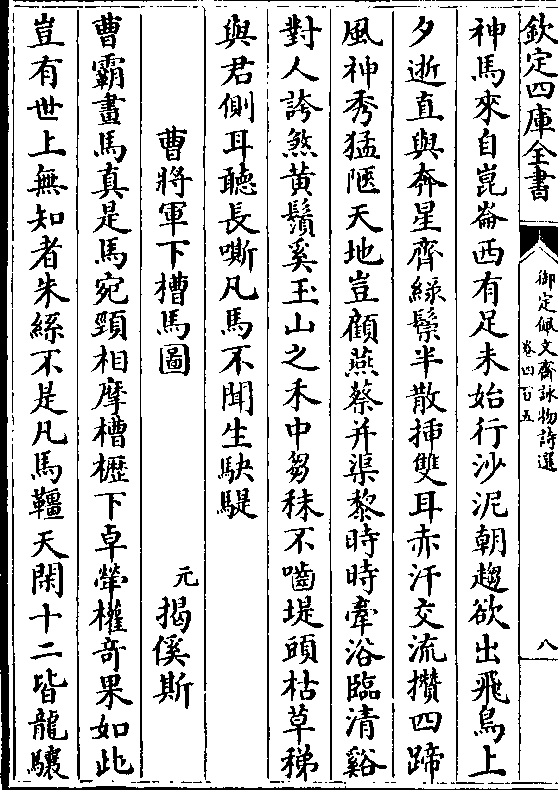 欽定四庫全書
御定佩文齋詠物詩選
卷四百五
八
神馬來自崑崙西有足未始行沙泥朝趨欲出飛鳥上
夕逝直與奔星齊綠鬃半散挿雙耳赤汗交流攢四蹄
風神秀猛陋天地豈顧燕蔡并渠黎時時牽浴臨清谿
對人誇煞黄鬚奚玉山之禾中芻秣不嚙堤頭枯草稊
與君側耳聽長嘶凡馬不聞生駃騠
曹將軍下槽馬圖
元揭傒斯
曹霸畫馬真是馬宛頸相摩槽櫪下卓犖權奇果如此
豈有世上無知者朱絲不是凡馬韁天閑十二皆龍驤